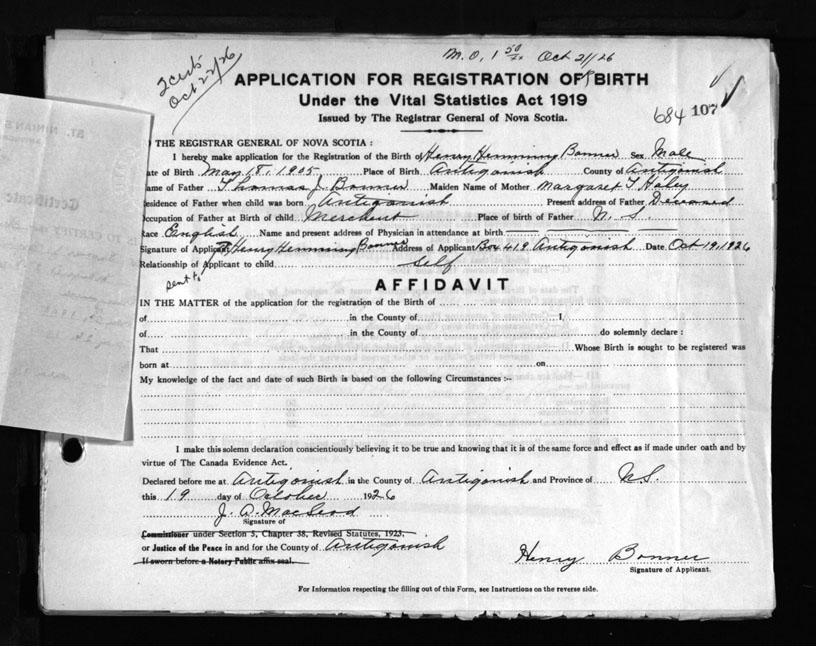 M.O. 1 50/xx Oct 21/26
2 certs
Oct 22/26
APPLICATION FOR REGISTRATION OF BIRTH
Under the Vital Statistics Act 1919
Issued by The Registrar General of Nova Scotia.
684 107
O THE REGISTRAR GENERAL OF NOVA SCOTIA :
I hereby make application for the Registration of the Birth of Henry Hemming Bonner Sex Male
ate of Birth May 18, 1905 Place of Birth Antigonish County of Antigonish
ame of Father Thomas J. Bonner Maiden Name of Mother Margaret T Haley
esidence of Father when child was born Antigonish Present address of Father Deceased
ccupation of Father at Birth of child Merchant Place of birth of Father N. S.
ace English Name and present address of Physician in attendance at birth
Signature of Applicant Henry Hemming Bonner Address of Applicant Box 419 Antigonish Date Oct 19, 1926
Relationship of Applicant to child self
sent to
AFFIDAVIT
IN THE MATTER of the application for the registration of the Birth of
of in the County of I,
of in the County of do solemnly declare :
That Whose Birth is sought to be registered was
born at on
My knowledge of the fact and date of such Birth is based on the following Circumstances :-
I make this solemn declaration conscientiously believing it to be true and knowing that it is of the same force and effect as if made under oath and by
virtue of The Canada Evidence Act.
Declared before me at Antigonish in the County of Antigonish and Province of N.S.
this 19 day of October 1926
J. A. MacLeod
Signature of
Commissioner under Section 3, Chapter 38, Revised Statutes, 1923,
or Justice of the Peace in and for the County of Antigonish
If sworn before a Notary Public affix seal.
Henry Bonner
Signature of Applicant.
For Information respecting the filling out of this Form, see Instructions on the reverse side.